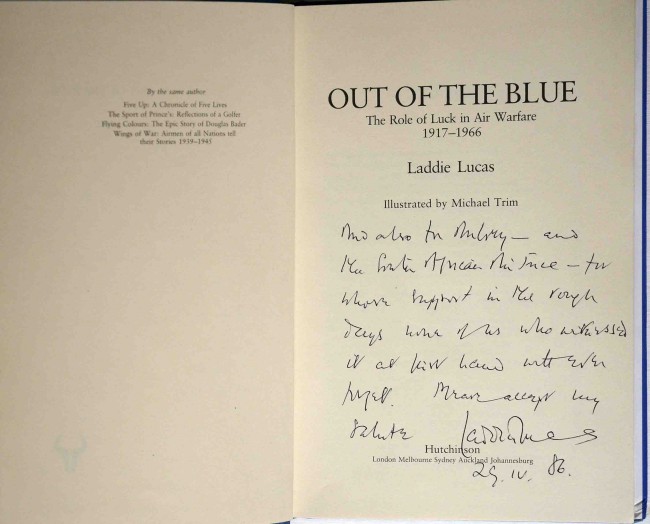 By the same author
Five Up: A Chronicle of Five Lives
The Sport of Prince's: Reflections of a Golfer
Flying Colours: The Epic Story of Douglas Bader
Wings of War: Airmen of all Nations tell
their Stories 1939–1945
OUT OF THE BLUE
The Role of Luck in Air Warfare
1917–1966
Laddie Lucas
Illustrated by Michael Trim
And also for Aubrey – and
the South African Air Force – for
whose support in the rough
days none of us who witnessed
it at first hand will ever
forget. Please accept my
salute Laddie Lucas
Hutchinson
London Melbourne Sydney Auckland Johannesburg
29. IV. 86.